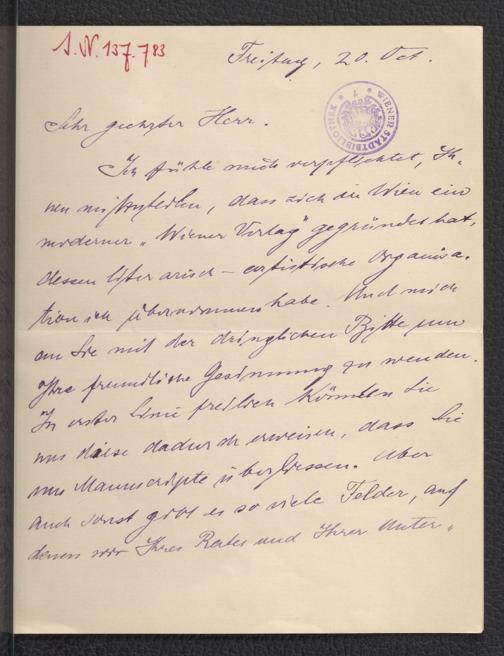 J. N. 137.783
Freitag, 20. Oct.
WIENER STADTBIBLIOTHEK
Sehr geehrter Herr.
Ich fühle mich verpflichtet, Ih-
nen mitzuteilen, dass sich in Wien ein
moderner „Wiener Verlag" gegründet hat,
dessen litterarisch-artistische Organisa-
tion ich übernommen habe. Und mich
an Sie mit der dringlichen Bitte um
Ihre freundliche Gesinnung zu wenden.
In erster Linie freilich könnten Sie
uns diese dadurch erweisen, dass Sie
uns Manuscripte überliessen. Aber
auch sonst gibt es so viele Felder, auf
denen wir Ihres Rates und Ihrer Unter-